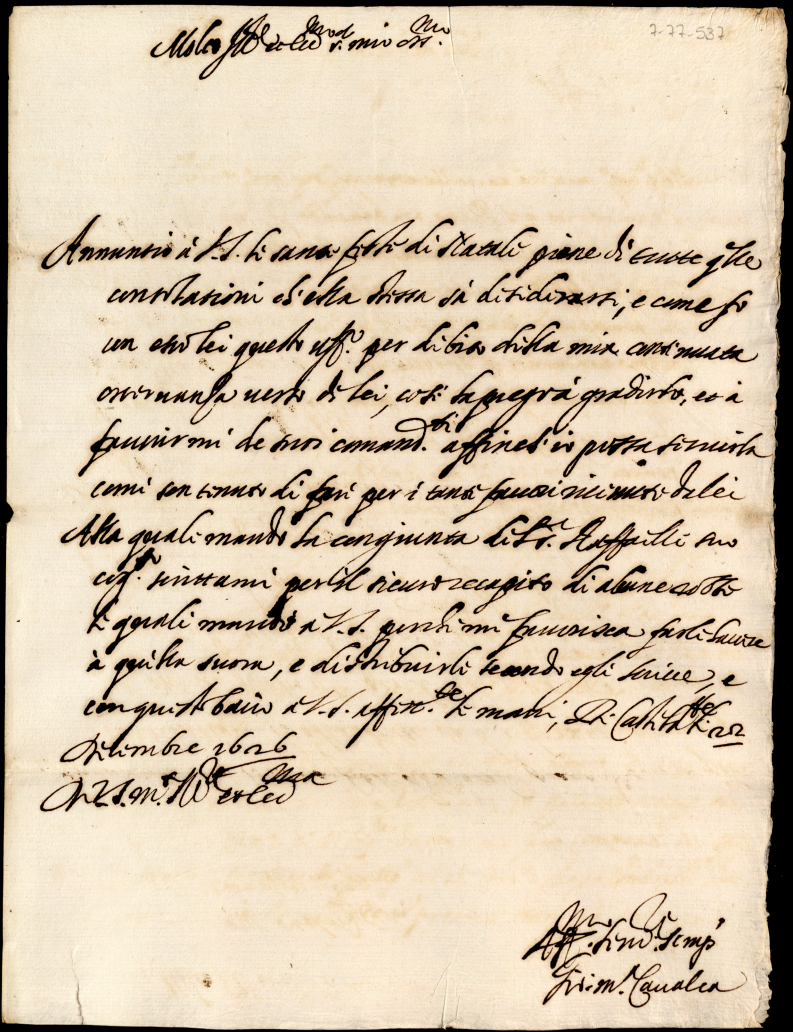 7-77-537
Molto Ill.re et Ecc.mo s.r mio oss.mo
Annuntio à V.S. le sante feste di Natale piene di tutte q.lle
consolationi ch'ella stessa sà desiderarsi, e come fo
con esso lei questo uff.o per debito della mia continuata
osservanza verso di lei, così la prego à gradirlo, et à
favorirmi de suoi comand.ti affinch'io possa servirla
come son tenuto di fare per i tanti favori ricevuti da lei
Alla quale mando la congiunta del S.r Raffaelle suo
cog.to scrittami per il sicuro recapito di alcune robbe
le quali mando à V.S. perche mi favorisca farle havere
à quella suora, e distribuirle secondo egli scrive, e
con questo bacio à V.S. affett.te le mani, Di Castell.
Decembre 1626
Di V.S. m.to Ill.re et Ecc.ma
Aff.mo Ser.re semp.
Gir.mo Cavalca